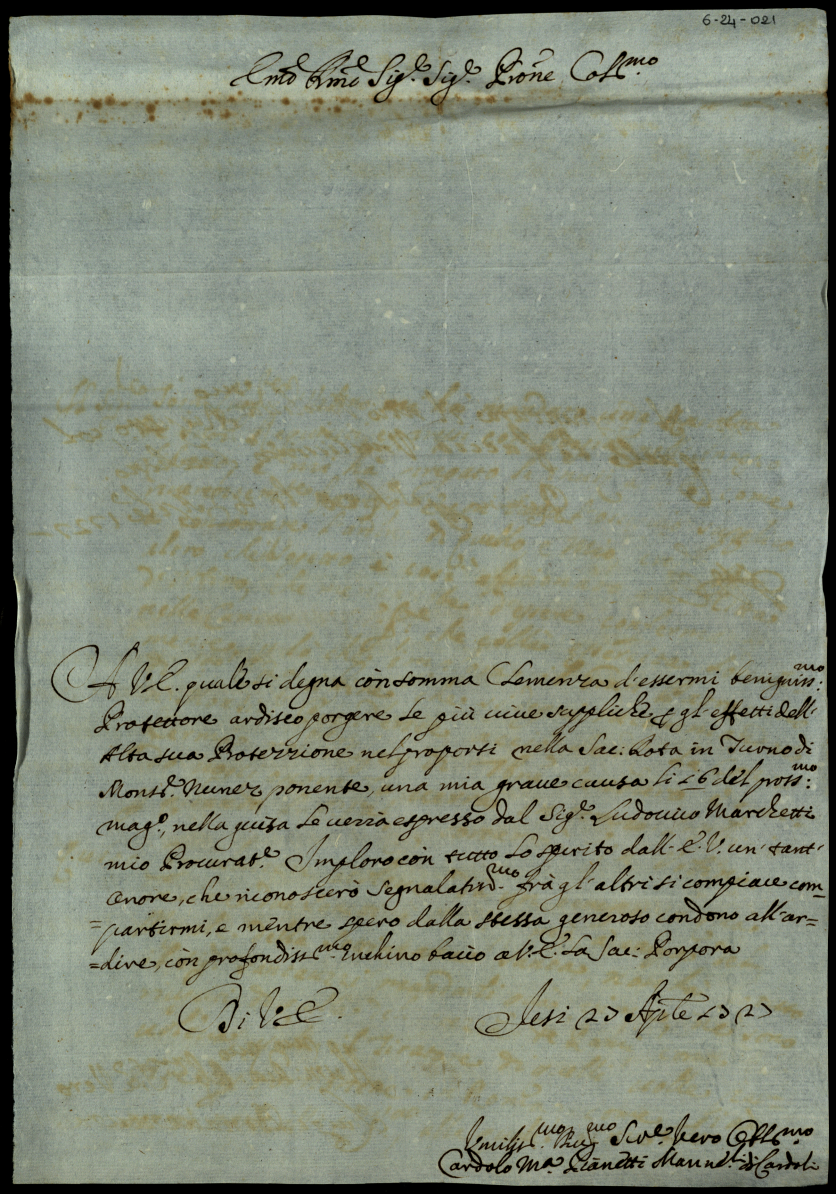 6-24-021
Emo Rmo Sigre Sigre Prone Colmo
A V.E. quale si degna con somma Clemenza d'essermi benigniss:mo
Protettore ardisco porgere le più vive suppliche p gl'effetti dell'
Alta sua Protezzione nel proporsi nella Sac: Rota in Turno di
Monsr. Nunez ponente, una mia grave causa li 16 del pross:mo
magº, nella guisa le verrà espresso dal Sigr. Ludovico Marchetti
mio Procurate. Imploro con tutto lo spirito dall'E.V. un'tant'
onore, che riconoscerò segnalatissmo frà gl'altri si compiace com=
=partirmi, e mentre spero dalla stessa generoso condono all'ar=
=dire, con profondissmo Inchino bacio a V.E. La Sac: Porpora
Di V.E.
Jesi 27 Aprile 1727
Umiliss.mo Servre vero Obblmo
Cardolo Ma.